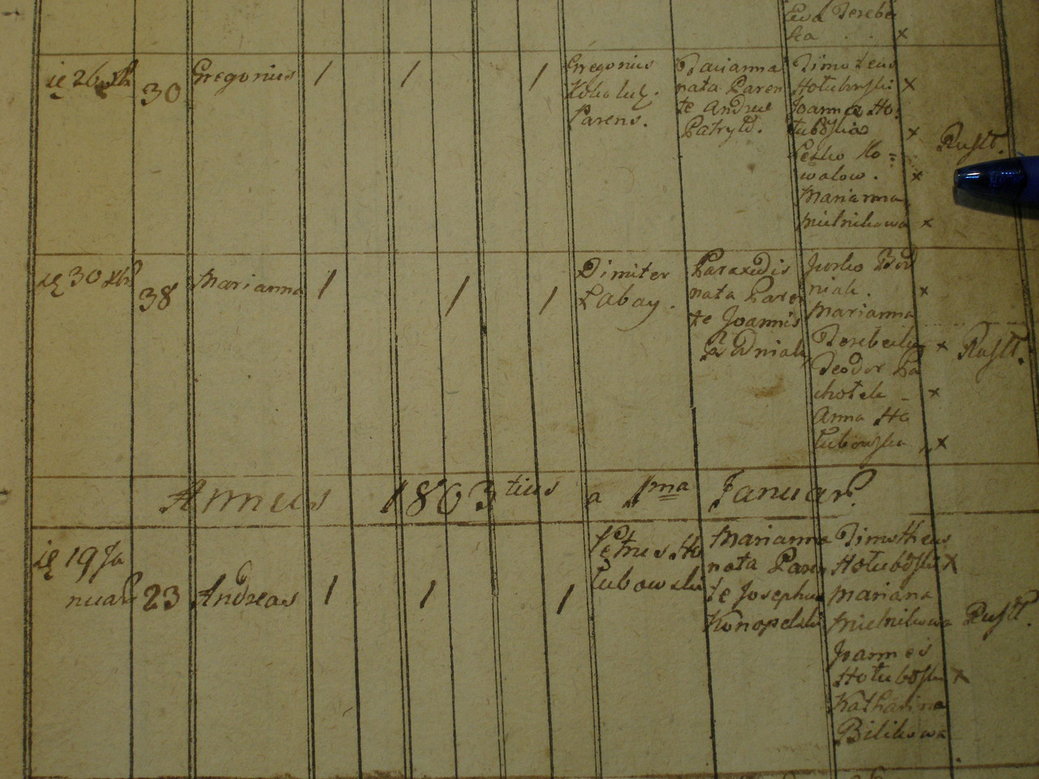 Ewa Derebe
ka . . x
ię 26 30 Gregorius 1 1 1
Gregorius
Parens.
Marianna
nata Paren
te Andrea
Patryło.
Timoteus
Hołubowski x
Joanna Ho
łubowska x
Lesko Ko=
walow. x
Marianna
Mielnikowa x
Rust.
ię 30 38 Marianna 1 1 1
Dimiter
Łabay.
Paraxedis
nata Paren
te Joannis
Jurko Bod
niak. x
Marianna
Derebecka x
Teodor Pa
chołek - x
Anna Ho
łubowska x
Rust.
Annus 1803tius a 1ma Januar.
ię 19 Ja
nuar 23 Andreas 1 1 1
Petrus Ho
łubowski
Marianna
nata Paren
te Josepho
Konopelski
Timotheus
Hołubowski x
Mariana
Mielnikowa
Joannes
Hołubowski x
Katharina
Bilikowa
Rust.